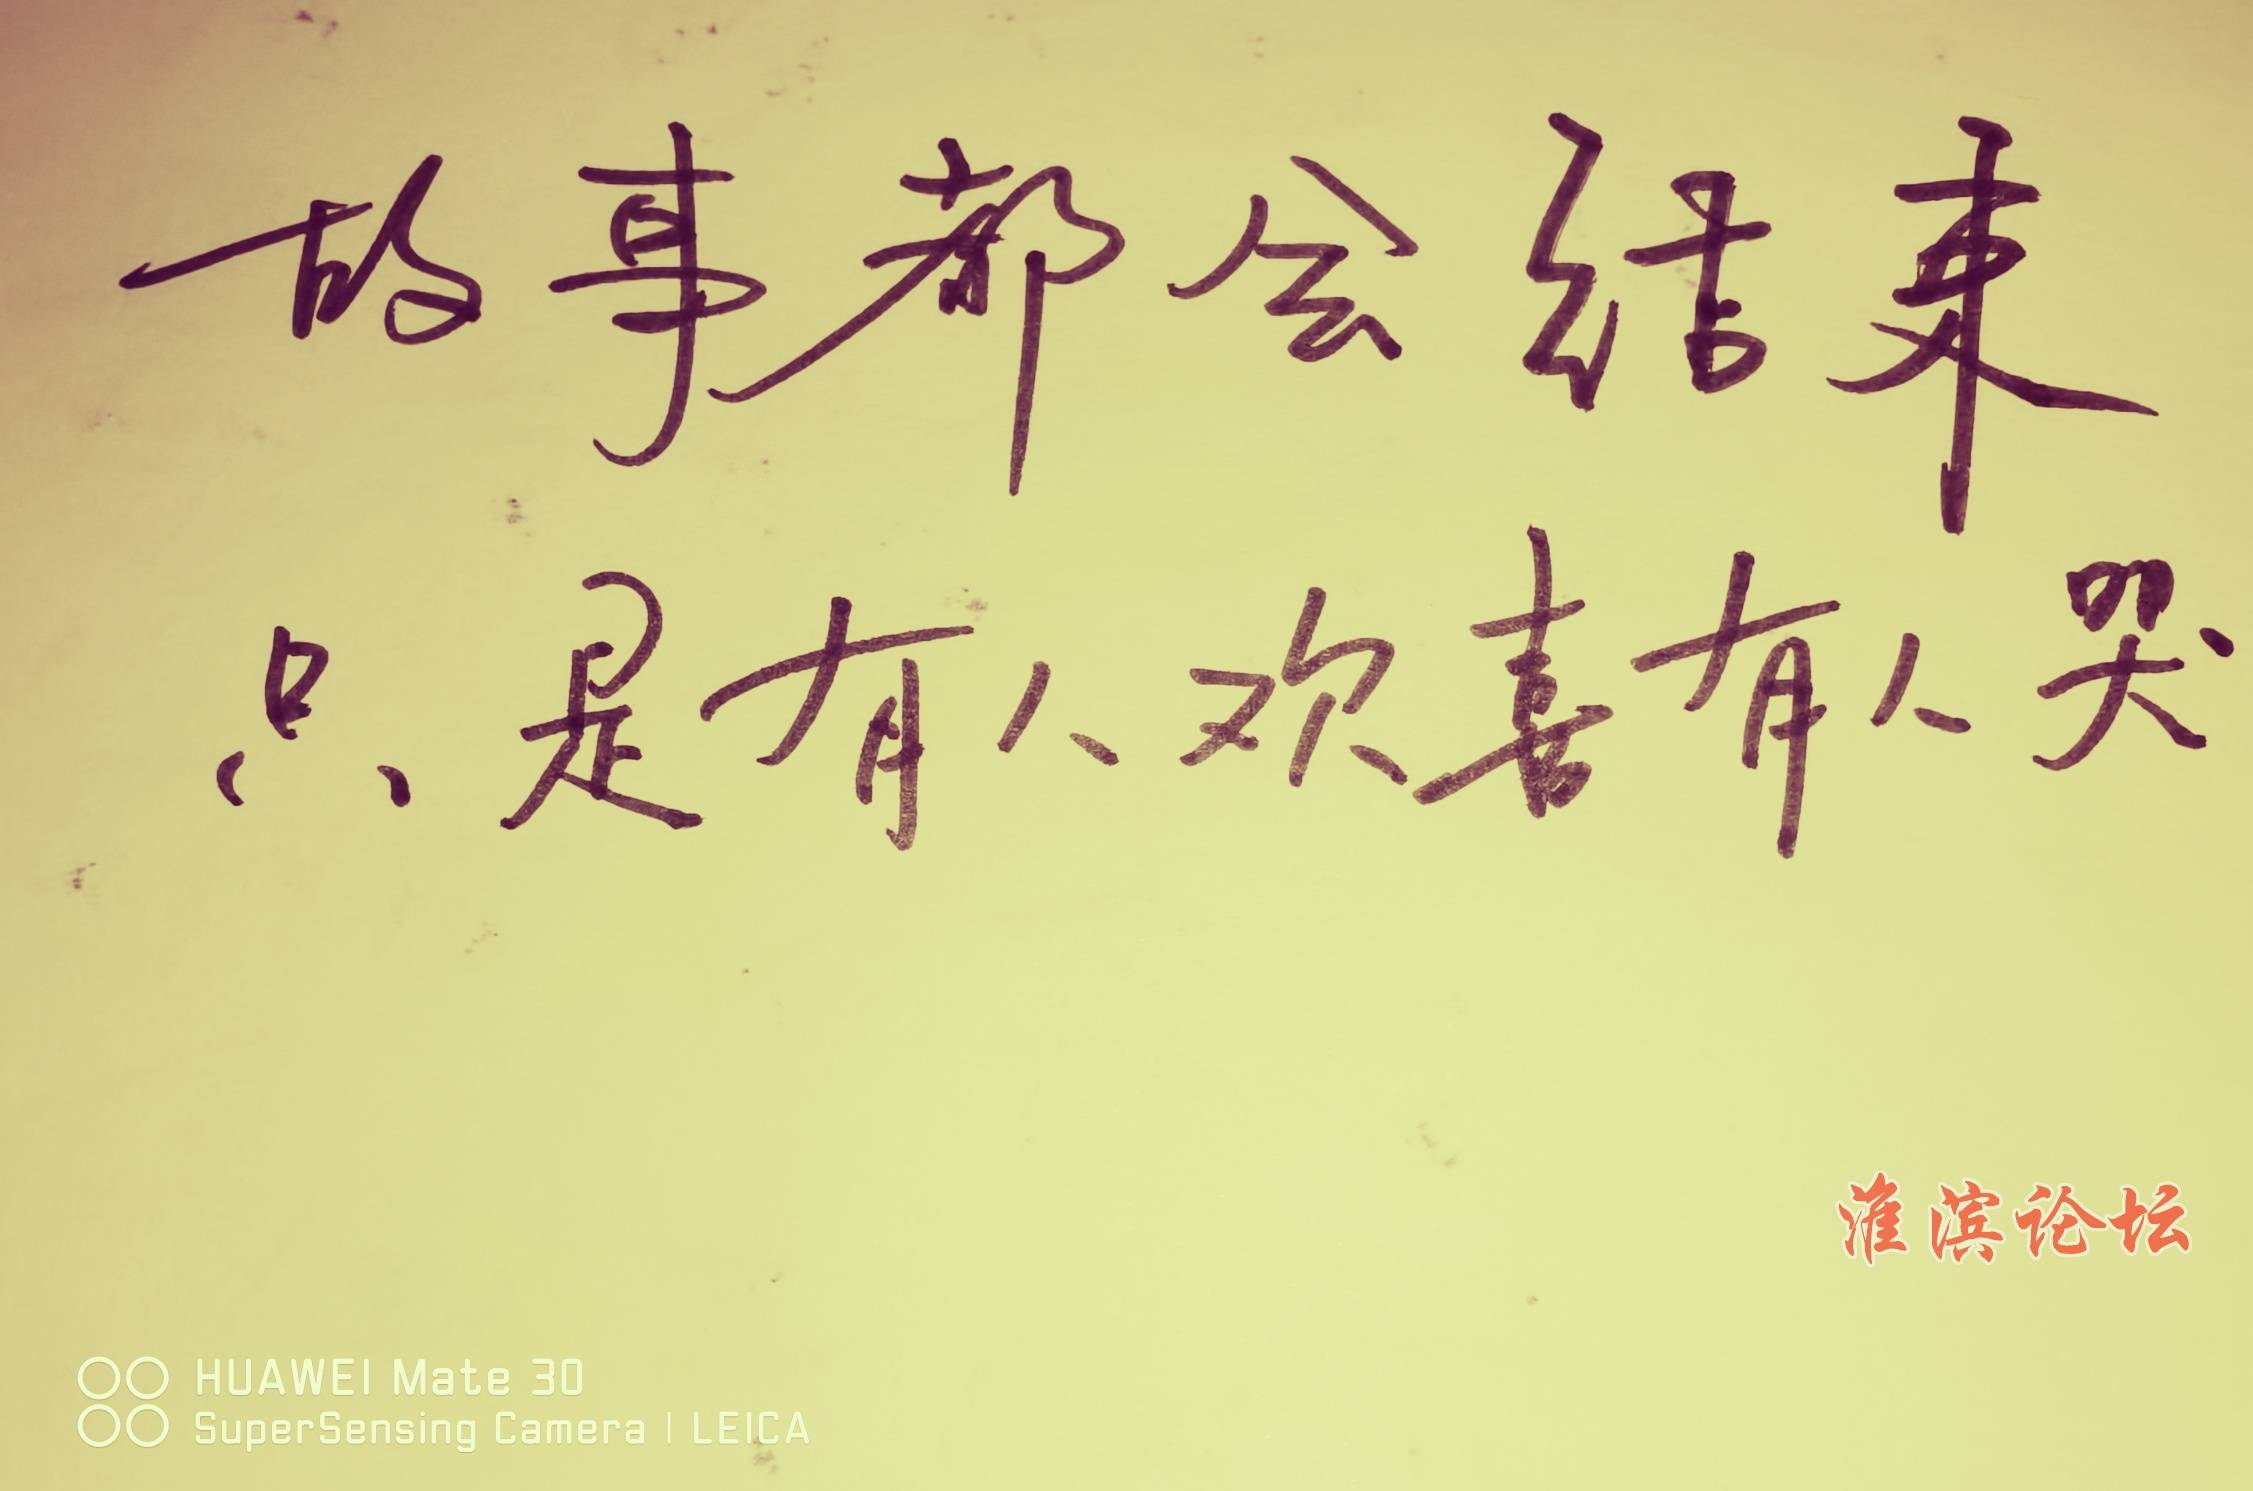 故事都会结束
只是有人欢喜有人哭
淮滨论坛
HUAWEI Mate 30
SuperSensing Camera | LEICA